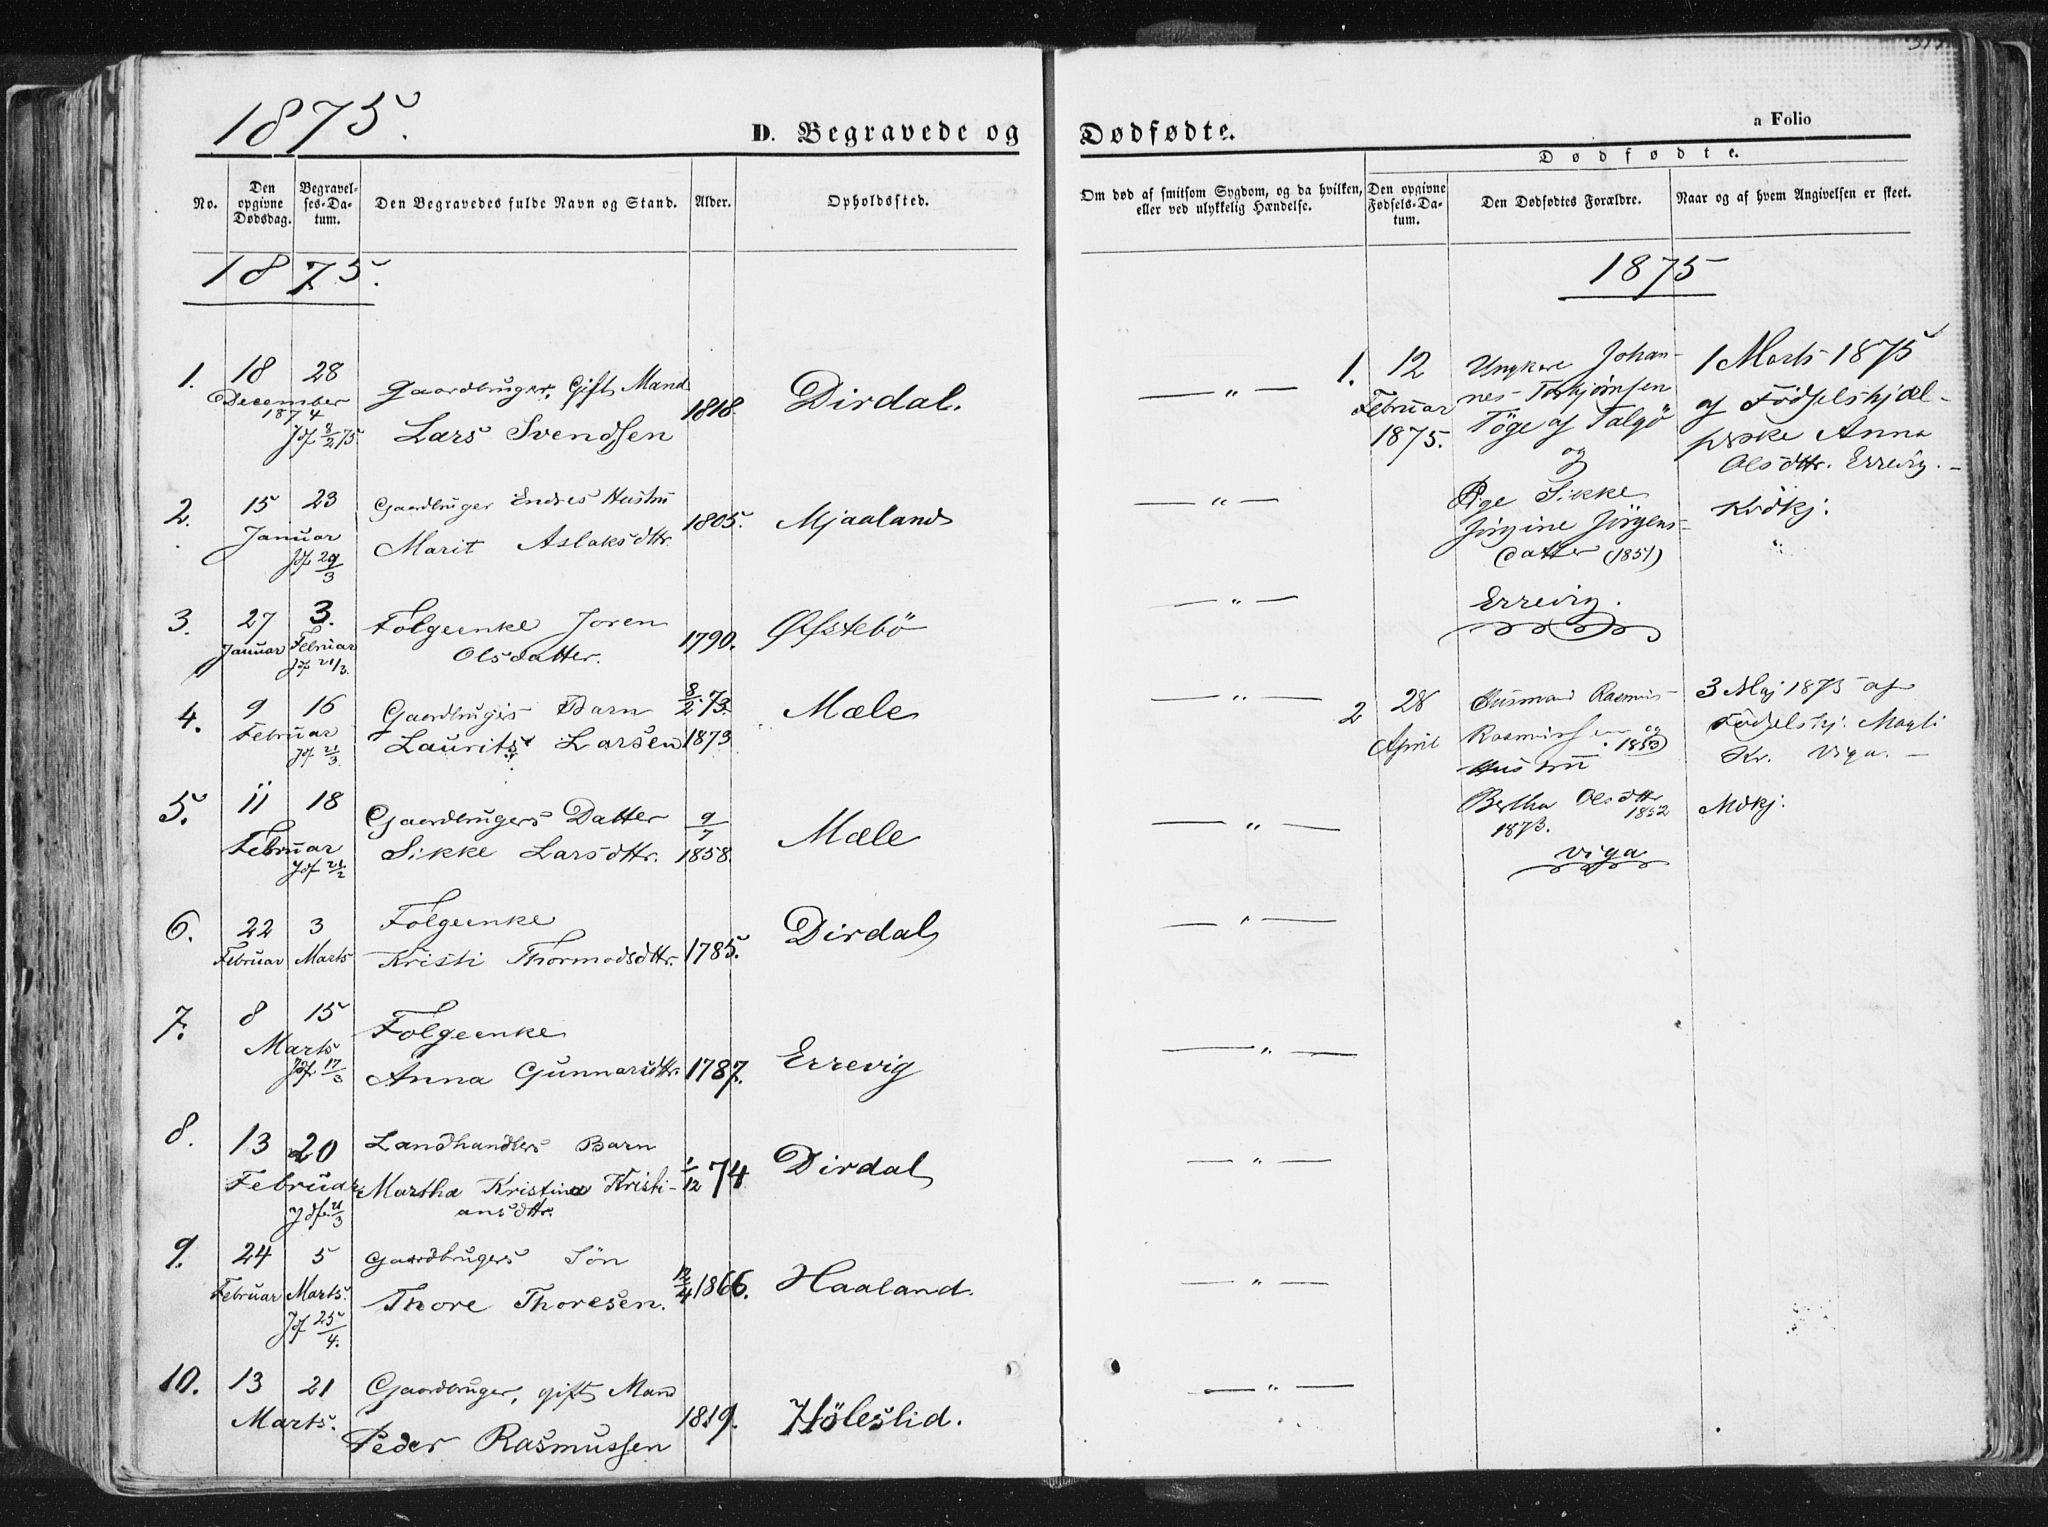 1875.
D. Begravede og Dødfødte.
a Folio
No.
Den opgivne Dødsdag.
Begravelses-Datum.
Den Begravedes fulde Navn og Stand.
Alder.
Opholdssted.
Om død af smitsom Sygdom, og da hvilken, eller ved ulykkelig Hændelse.
Dødfødte.
Den opgivne Fødsels-Datum.
Den Dødfødtes Forældre.
Naar og af hvem Angivelsen er skeet.
1875.
1. 18 28 Gaardbruger, Gift Mand
December
1874
Jdf 8/2 75. Lars Svendsen 1818. Dirdal. — „ —
2. 15 23 Gaardbruger Endres Hustru
Januar Marit Aslaksdttr. 1805. Mjaaland — „ —
Jdf 29/3
3. 27 3. Følgeenke Joren 1790. Øfstebö — „ —
Januar Februar Olsdatter.
Jdf 21/3.
4. 9 16 Gaardbrugers Barn 8/2 73. Mæle — „ —
Februar Laurits Larsen 1873
Jdf 21/3.
5. 11 18 Gaardbrugers Datter 9/7 Mæle — „ —
Februar Sikke Larsdttr. 1858.
Jdf 21/2
6. 22 3 Følgeenke Dirdal — „ —
Februar Marts Kristi Thormodsdttr. 1785.
7. 8 15 Følgeenke
Marts Anna Gunnarsdttr. 1787. Errevig — „ —
Jdf. 17/3
8. 13 20 Landhandlers Barn
Februar Martha Kristina Kristi- 1/12 74 Dirdal — „ —
Jdf. 21/3 ansdttr.
9. 24 5 Gaardbrugers Sön
Februar Marts. Thore Thoresen. 12/4 1866. Haaland. — „ —
Jdf 25/4.
10. 13 21 Gaardbruger, gift Mand
Marts. Peder Rasmussen 1819. Höleslid. — „ —
1875
1. 12 Ungkarl Johan- 1 Marts 1875
Februar nes Torbjørnsen af Födselshjæl-
1875. Töge af Talgö perske Anna
og Olsdttr. Errevig. —
Pige Sikke Kvdkj.
Jörgine Jörgens-
datter (1851)
Errevig.
2 28 Husmand Rasmus 3 Maj 1875 af
April Rasmussen og 1853) Födselshj. Magli
Hustru Kr. Viga. —
Bertha Olsdttr 1852 Mdkj.
1873.
Viga